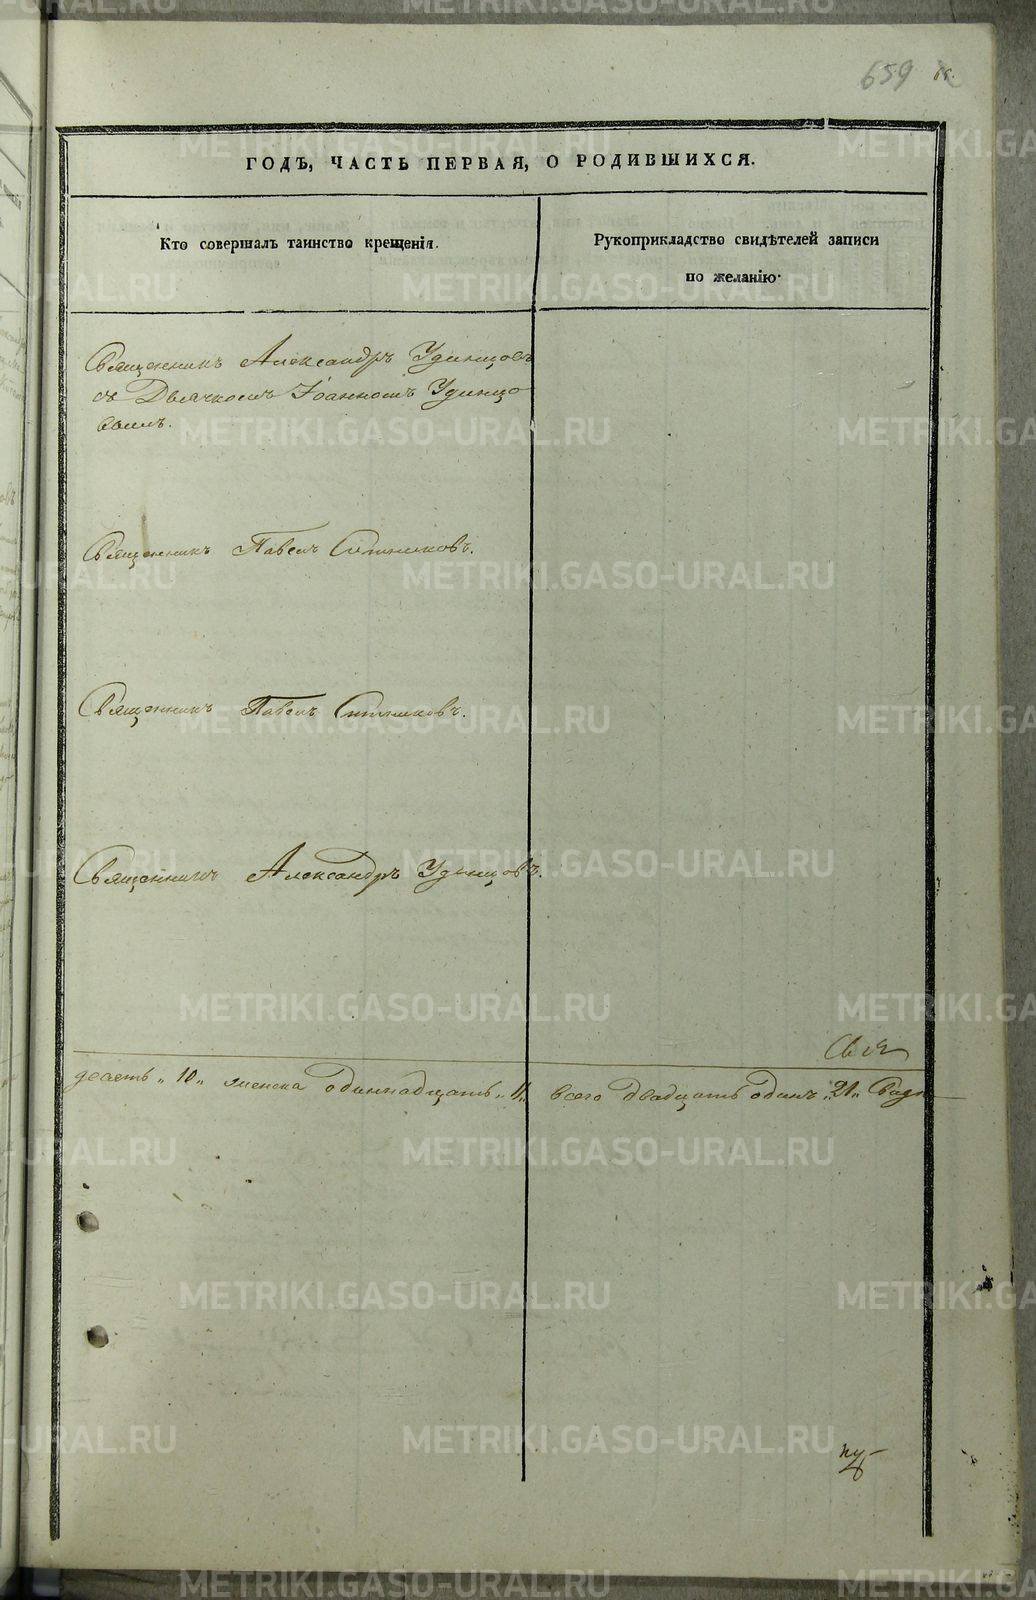 659
ГОДЪ, ЧАСТЬ ПЕРВАЯ, О РОДИВШИХСЯ.
Кто совершалъ таинство крещенія.
Рукоприкладство свидѣтелей записи
по желанію.
Священникъ Александръ Удинцовъ
съ Дьячкомъ Іоанномъ Удинцо
вымъ.
Священникъ Павелъ Ситниковъ.
Священникъ Павелъ Ситниковъ.
Священникъ Александръ Удинцовъ.
десять „10„ женска одиннадцать „11„ всего Двадцать одинъ „21„
METRIKI.GASO-URAL.RU